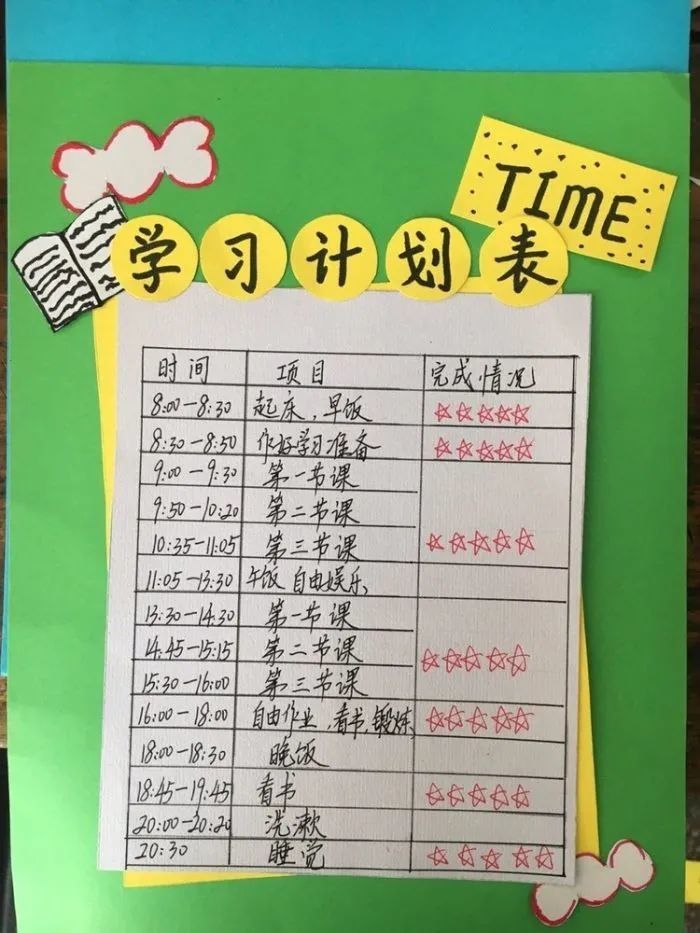 TIME
学习计划表
时间 项目 完成情况
8:00-8:30 起床、早饭 ☆☆☆☆☆
8:30-8:50 作好学习准备 ☆☆☆☆☆
9:00-9:30 第一节课
9:50-10:20 第二节课
10:35-11:05 第三节课 ☆☆☆☆☆
11:05-13:30 午饭 自由娱乐
13:30-14:30 第一节课
14:45-15:15 第二节课 ☆☆☆☆☆
15:30-16:00 第三节课
16:00-18:00 自由作业、看书、锻炼 ☆☆☆☆☆
18:00-18:30 晚饭
18:45-19:45 看书 ☆☆☆☆☆
20:00-20:20 洗漱
20:30 睡觉 ☆☆☆☆☆